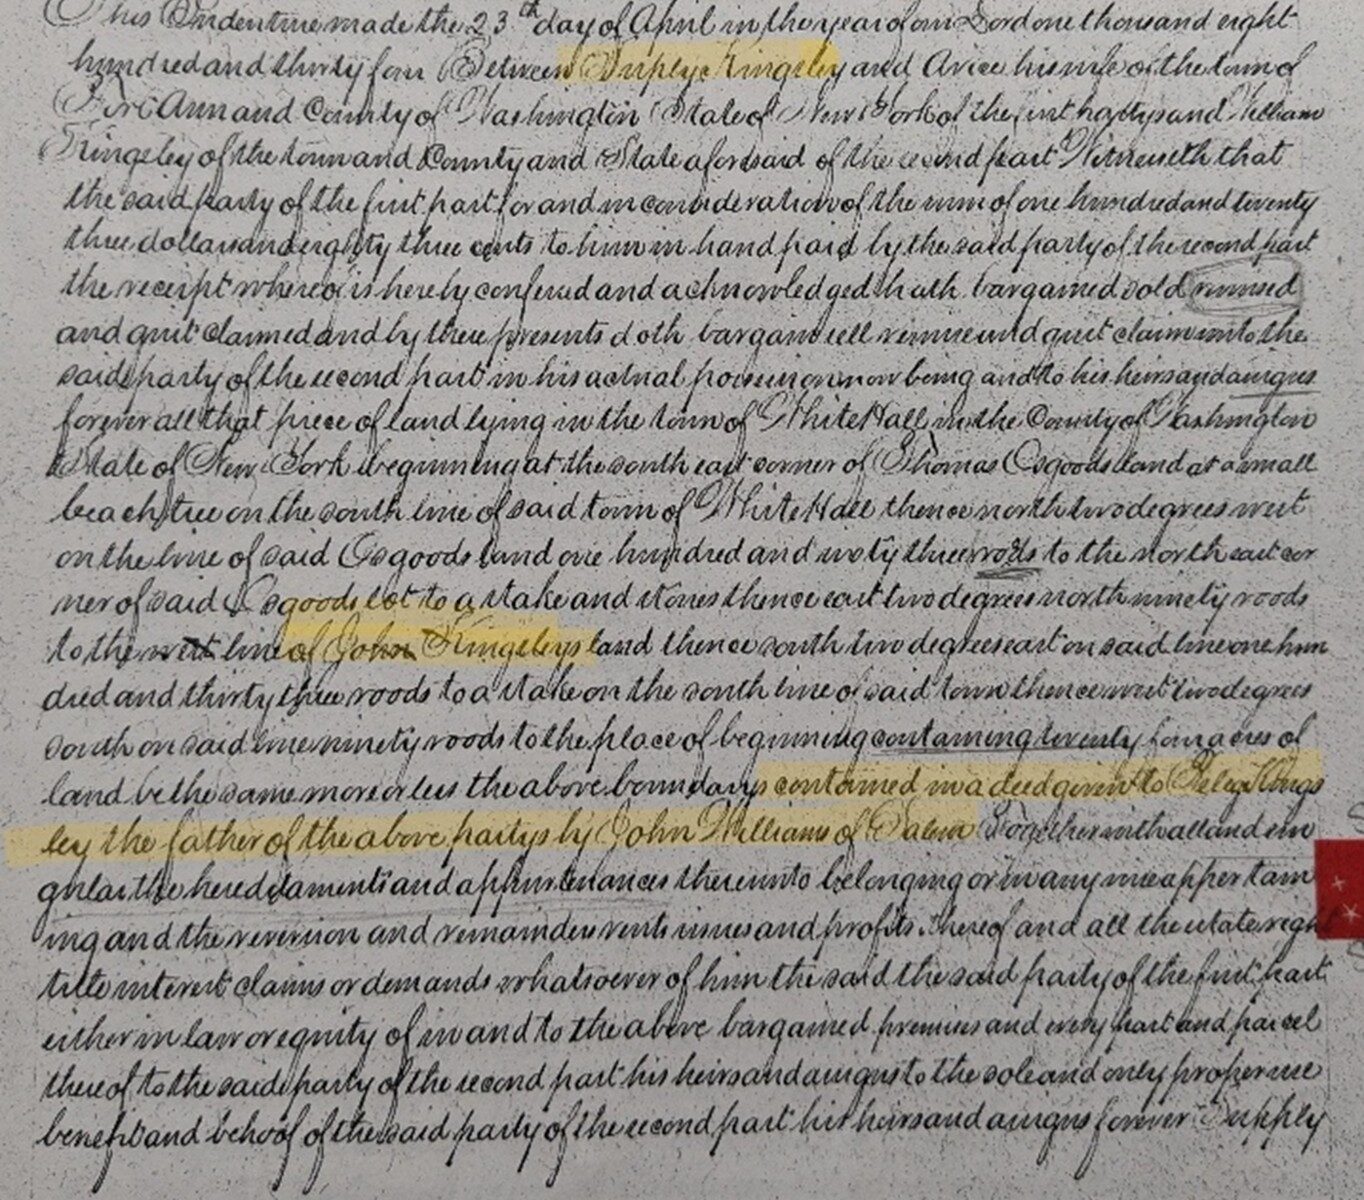 This Indenture made the 23th day of April in the year of our Lord one thousand eight
hundred and thirty four Between Supply Kingsley and Avice his wife of the town of
Fort Ann and County of Washington State of New York of the first party and William
Kingsley of the town and County and State aforesaid of the second part Witnesseth that
the said party of the first part for and in consideration of the sum of one hundred and twenty
three dollars and eighty three cents to him in hand paid by the said party of the second part
the receipt whereof is hereby confessed and acknowledged hath bargained sold remised
and quit claimed and by these presents doth bargain sell remise and quit claim unto the
said party of the second part in his actual possession now being and to his heirs and assigns
forever all that piece of land lying in the town of White Hall in the County of Washington
State of New York beginning at the south east corner of Thomas Osgoods land at a small
beach tree on the south line of said town of White Hall thence north two degrees west
on the line of said Osgoods land one hundred and sixty three rods to the north east cor
ner of said Osgoods lot to a stake and stones thence east two degrees north ninety roods
to the west line of John Kingsleys land thence south two degrees east on said line one hun
dred and thirty three roods to a stake on the south line of said town thence west two degrees
south on said line ninety roods to the place of beginning containing twenty four acres of
land be the same more or less the above boundarys contained in a deed given to Peleg Kings
ley the father of the above partys by John Williams of Salem Together with all and sin
gular the hereditaments and appurtenances thereunto belonging or in any wise appertain
ing and the reversion and remainders rents issues and profits thereof and all the estate right
title interest claims or demands whatsoever of him the said the said party of the first part
either in law or equity of in and to the above bargained premises and every part and parcel
thereof to the said party of the second part his heirs and assigns to the sole and only proper use
benefit and behoof of the said party of the second part his heirs and assigns forever Supply